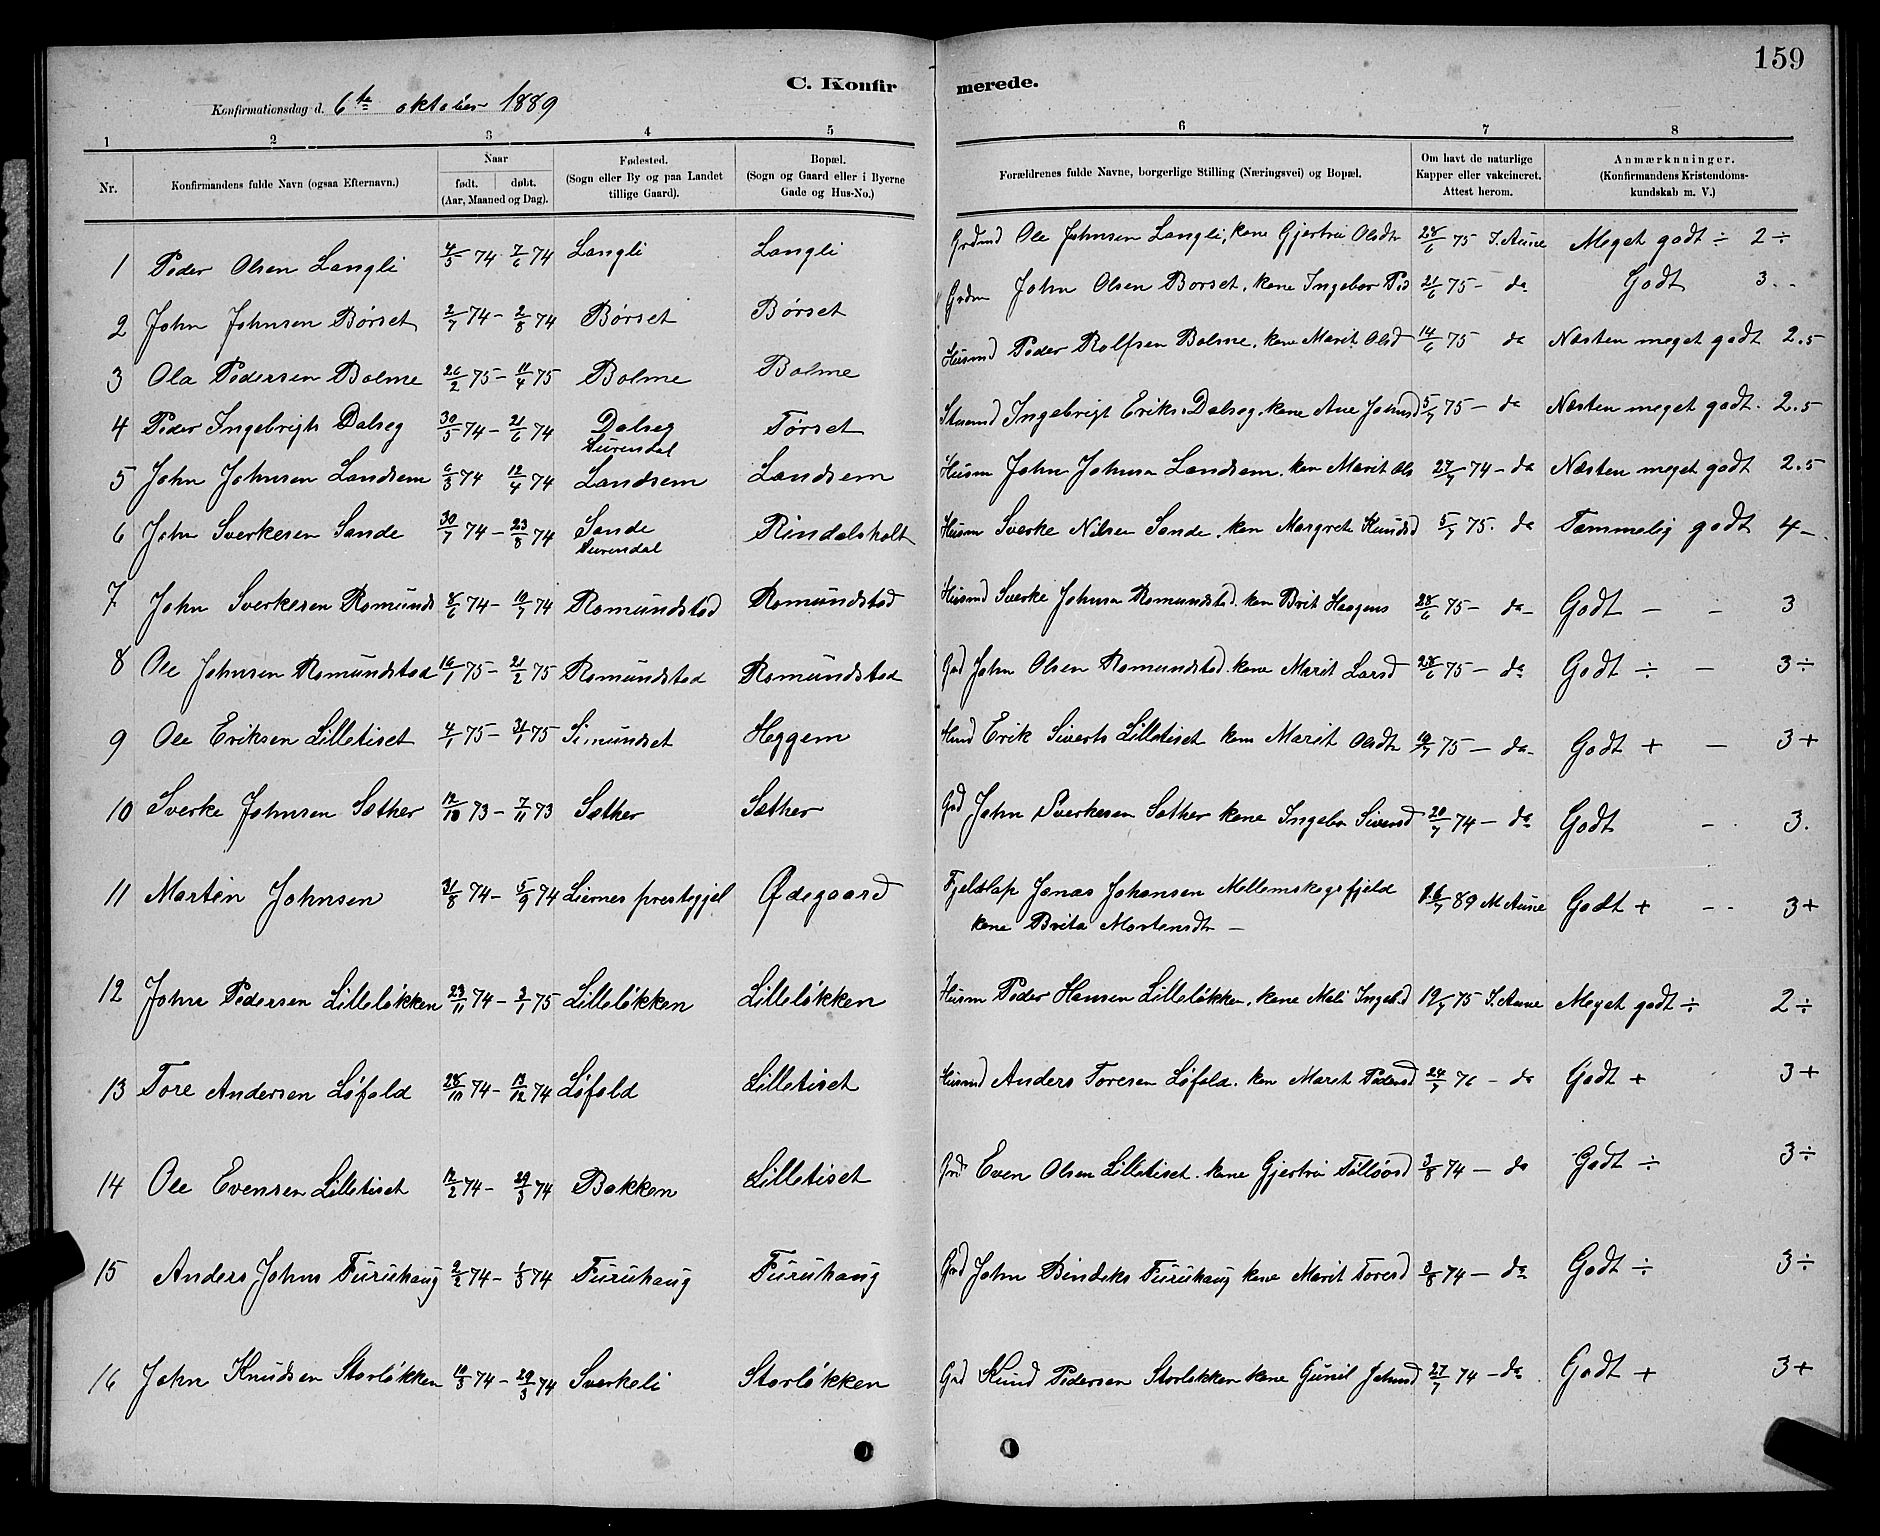 159
C. Konfirmerede.
Konfirmationsdag d. 6te oktober 1889
1 2 3 4 5 6 7 8
Nr. Konfirmandens fulde Navn (ogsaa Efternavn.) Naar født. døbt. (Aar, Maaned og Dag). Fødested. (Sogn eller By og paa Landet tillige Gaard). Bopæl. (Sogn og Gaard eller i Byerne Gade og Hus-No.) Forældrenes fulde Navne, borgerlige Stilling (Næringsvei) og Bopæl. Om havt de naturlige Kapper eller vakcineret. Attest herom. Anmærknninger. (Konfirmandens Kristendomskundskab m. V.)
1 Peder Olsen Langli 4/5 74 7/6 74 Langli Langli Grdmd Ole Johnsen Langli, kone Gjertru Olsdtr 28/6 75 I. Aune Meget godt ÷ 2 ÷
2 John Johnsen Børset 2/7 74 - 2/8 74 Børset Børset Grdm John Olsen Børset, kone Ingebor Ped 21/6 75 - do Godt 3
3 Ola Pedersen Bolme 26/2 75 - 11/4 75 Bolme Bolme Husmd Peder Rolfsen Bolme, kone Marit Olsd 14/6 75 do Næsten meget godt 2.5
4 Peder Ingebrigts Dalseg 30/5 74 - 21/6 74 Dalseg Surendal Tørset Ingebrigt Eriks. Dalseg, kone Ane Johnsd 5/7 75 - do Næsten meget godt. 2.5
5 John Johnsen Landsem 6/3 74 12/4 74 Landsem Landsem Husm John Johnsn Landsem. kon Marit Ols 27/7 74 - do Næsten meget godt 2.5
6 John Sverkesen Sande 30/7 74 - 23/8 74 Sande Surendal Rindalsholt Husm Sverke Nilsen Sande, kon Margrete Knudsd 5/7 75. do Temmelig godt 4 -
7 John Sverkesen Romunds 8/6 74 - 19/7 74 Romundstad Romundstad Husmd Sverke Johnsn Romundstad. kon Brit Haagens 28/6 75 - do - Godt - - 3
8 Ole Johnsen Romundstad 16/1 75 - 21/2 75 Romundstad Romundstad Grd John Olsen Romundstad. kone Marit Larsd 28/6 75 - do Godt ÷ - 3 ÷
9 Ole Eriksen Lilletiset 4/1 75 - 31/1 75 Simundset Heggem Erik Siverts Lilletiset kone Marit Olsdtr 19/7 75 - do - Godt + - 3 +
10 Sverke Johnsen Sæther 12/10 73 - 7/11 73 Sæther Sæther Grd John Sverkesen Sæther kone Ingebor Siversd 20/7 74 - do Godt - 3.
11 Martin Johnsen 31/8 74 - 5/9 74 Liernes prestegjel Ødegaard Fjeldlap Jonas Johansen Mellemskogsfjeld kone Brita Mortensdtr - 89 M Aune Godt + - - 3 +
12 John Pedersen Lilleløkken 23/11 74 - 3/1 75 Lilleløkken Lilleløkken Husm Peder Hansen Lilleløkken, kone Mali Ingebd 19/7 75 I. Aune Meget godt ÷ 2 ÷
13 Tore Andersen Løfald 28/10 74 - 13/12 74 Løfald Lilletiset Husmd Anders Toresen Løfald. kon Maret Pedersd 24/7 76 - do Godt + 3 +
14 Ole Evensen Lilletiset 12/2 74 - 29/3 74 Bakken Lilletiset Grd Even Olsen Lilletiset. kone Gjertru 3/8 74 - do Godt ÷ 3 ÷
15 Anders Johns Furuhaug 2/2 74 - 1/3 74 Furuhaug Furuhaug Grd John Furuhaug kone Marit Toresd 3/8 74 - do Godt ÷ 3 ÷
16 John Knudsen Storløkken 10/3 74 - 29/3 74 Sverkeli Storløkken Grd Knud Pedersen Storløkken kone Gunil Johnsd 27/7 74 - do Godt + 3 +